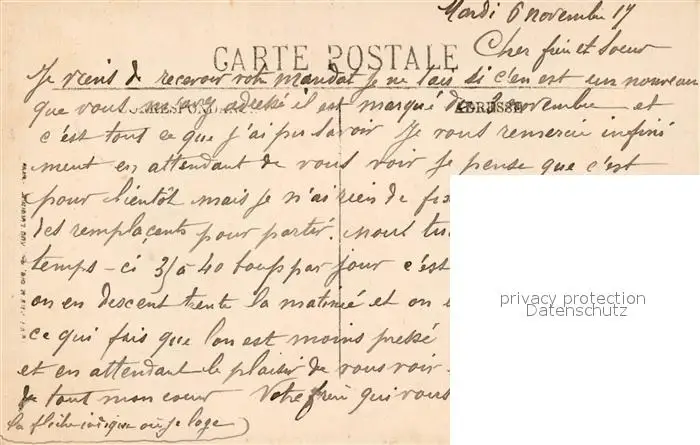 Mardi 6 novembre 17
CARTE POSTALE
Cher frère et Soeur
Je viens de recevoir votre mandat Je ne sais si c'en est un nouveau
que vous m'avez adressé il est marqué du 2 novembre et
CORRESPONDANCE
ADRESSE
c'est tout ce que j'ai pu savoir Je vous remercie infini
ment en attendant de vous voir Je pense que c'est
pour bientôt mais Je n'ai rien de
des remplaçents pour partir. nous
temps-ci 35 à 40 par jour c'est
on en descent trente la matinié et on
ce qui fais que l'on est moins pressé
et en attendant le plaisir de vous voir
de tout mon coeur Votre frère qui vous
la flèche indique où je loge
privacy protection
Datenschutz